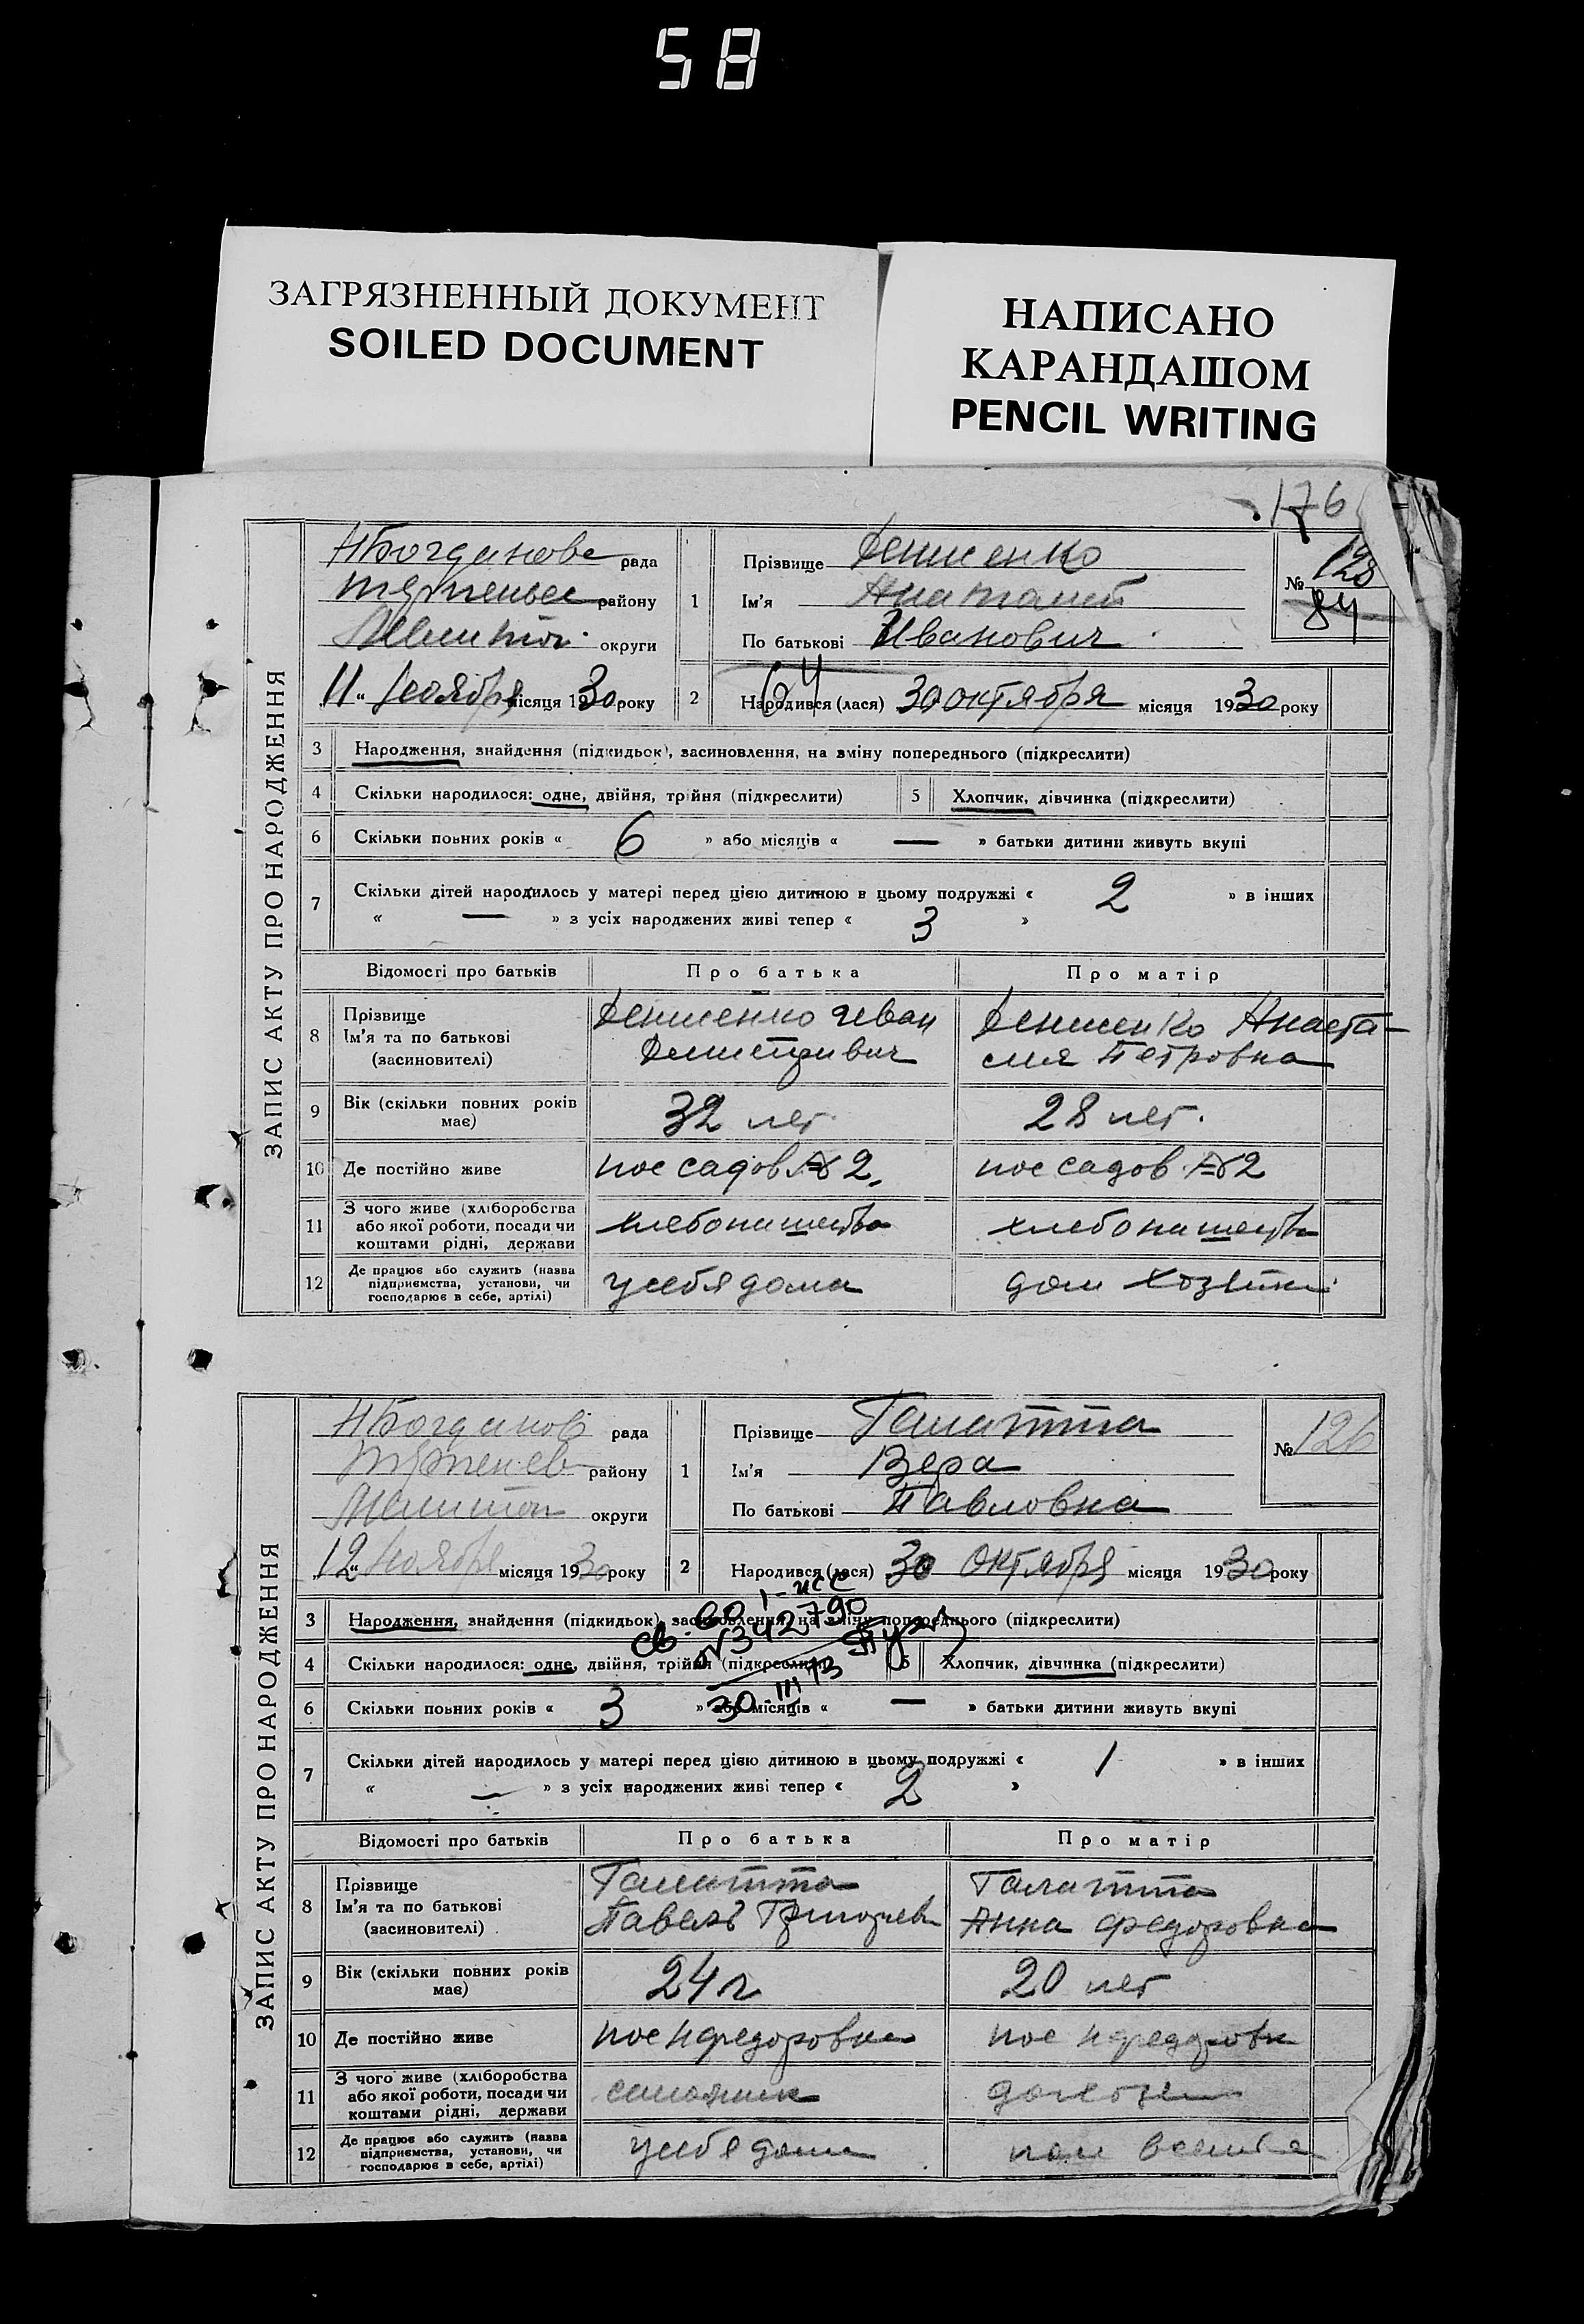 58
ЗАГРЯЗНЕННЫЙ ДОКУМЕНТ
SOILED DOCUMENT
НАПИСАНО
КАРАНДАШОМ
PENCIL WRITING
176
ЗАПИС АКТУ ПРО НАРОДЖЕННЯ
НБогданове рада
району
округи
11 " ноября місяця 1930 року
1
Прізвище Денисенко
Ім'я Анатолий
По батькові Иванович
№ 128
84
64
2 Народився (лася) 30 октября місяця 1930 року
3 Народження, знайдення (підкидьок), засиновлення, на зміну попереднього (підкреслити)
4 Скільки народилося: одне, двійня, трійня (підкреслити) 5 Хлопчик, дівчинка (підкреслити)
6 Скільки повних років « 6 » або місяців « — » батьки дитини живуть вкупі
7 Скільки дітей народилось у матері перед цією дитиною в цьому подружжі « 2 » в інших
« — » з усіх народжених живі тепер « 3 »
Відомості про батьків Про батька Про матір
8 Прізвище
Ім'я та по батькові
(засновителі)
Денисенко Иван
Денисенко Анаста-
сия Петровна
9 Вік (скільки повних років
має)
32 лет 28 лет.
10 Де постійно живе пос садов № 2. пос садов № 2
11 З чого живе (хліборобства
або якої роботи, посади чи
коштами рідні, держави
хлебопашество хлебопашеств
12 Де працює або служить (назва
підприємства, установи, чи
господарює в себе, артілі)
у себя дома дом хозяйк
ЗАПИС АКТУ ПРО НАРОДЖЕННЯ
НБогданов рада
району
Мелитоп округи
12 " ноября місяця 1930 року
1
Прізвище Галатта
Ім'я Вера
По батькові Павловна
№ 126
2 Народився (лася) 30 октября місяця 1930 року
3 Народження, знайдення (підкидьок), засиновлення, на зміну попереднього (підкреслити)
№342790
30 III 73
4 Скільки народилося: одне, двійня, трійня (підкреслити) 5 Хлопчик, дівчинка (підкреслити)
6 Скільки повних років « 3 » або місяців « — » батьки дитини живуть вкупі
7 Скільки дітей народилось у матері перед цією дитиною в цьому подружжі « 1 » в інших
« — » з усіх народжених живі тепер « 2 »
Відомості про батьків Про батька Про матір
8 Прізвище
Ім'я та по батькові
(засиновителі)
Галатта Галатта
Павелъ Григориев Анна Федоровна
9 Вік (скільки повних років
має)
24 г 20 лет
10 Де постійно живе пос Нфедоровка пос Нфедоровк
11 З чого живе (хліборобства
або якої роботи, посади чи
коштами рідні, держави
12 Де працює або служить (назва
підприємства, установи, чи
господарює в себе, артілі)
у себя дома